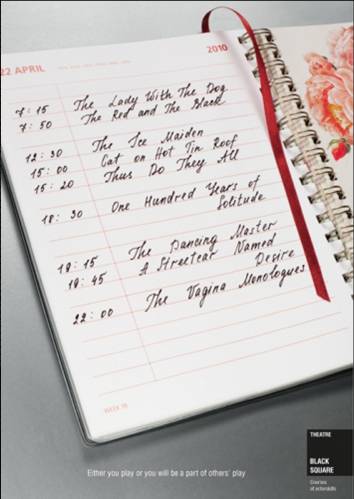 22 APRIL
2010
7:15 The Lady With The Dog
7:50 The Red and The Black
12:30 The Ice Maiden
15:00 Cat on Hot Tin Roof
15:20 Thus Do They All
18:30 One Hundred Years of
Solitude
19:15 The Dancing Master
19:45 A Streetcar Named
Desire
22:00 The Vagina Monologues
WEEK 16
Either you play or you will be a part of others' play
THEATRE
BLACK
SQUARE
Courses
of actorskills